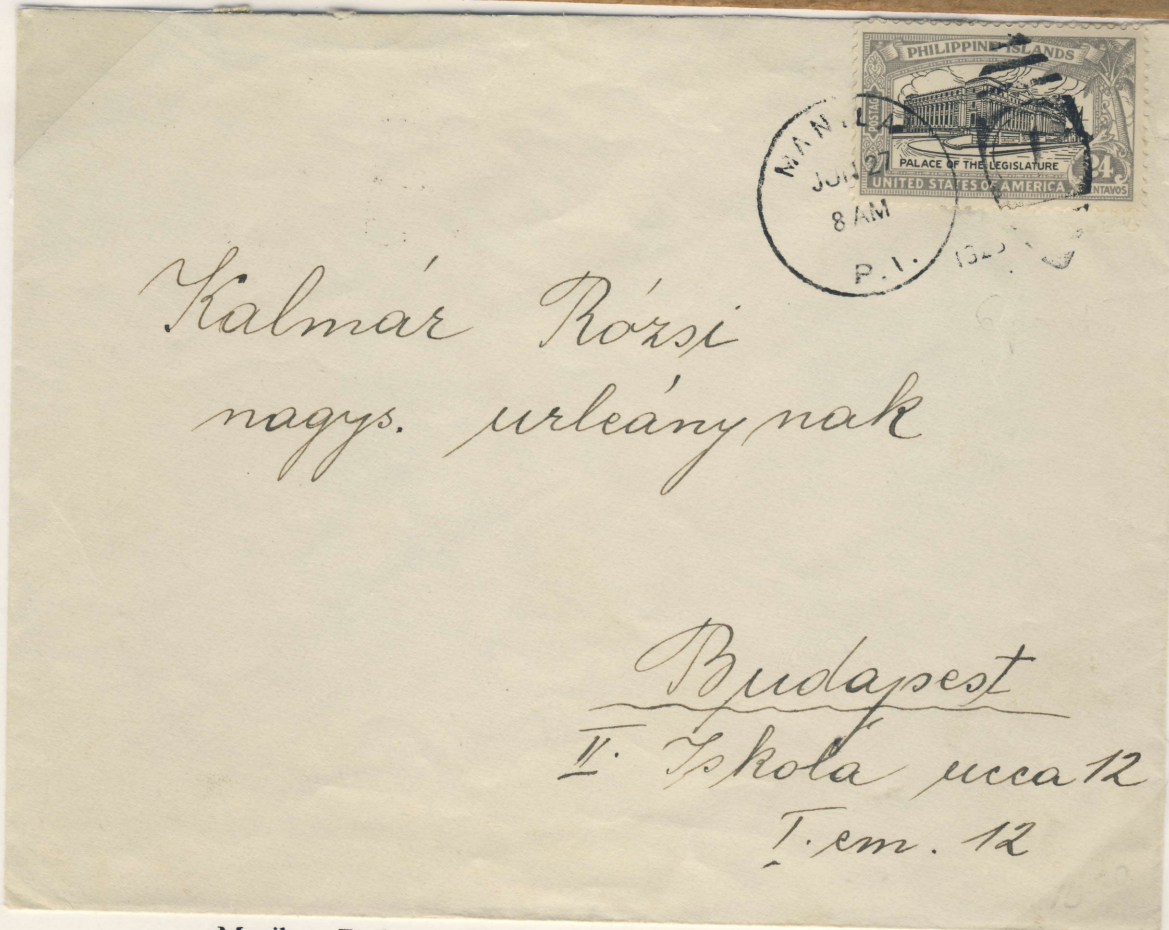 PHILIPPINE ISLANDS
POSTAGE
PALACE OF THE LEGISLATURE
24
UNITED STATES OF AMERICA
CENTAVOS
MANILA
JUN 27
8 AM
P.I.
Kalmár Rózsi
nagys. urleánynak
Budapest
II. Iskola ucca 12
I. em. 12